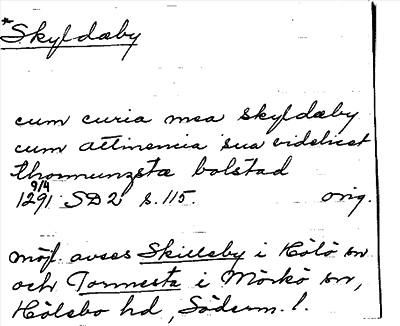 *Skyldæby
cum curia mea skyldæby
cum attinencia sua videlicet
thormunzsta bolstad
9/4
1291 SD 2 s. 115. orig.
möjl. avses Skilleby i Hölö sn
och Tormesta i Mörkö sn,
Hölebo hd, Söderm. l.